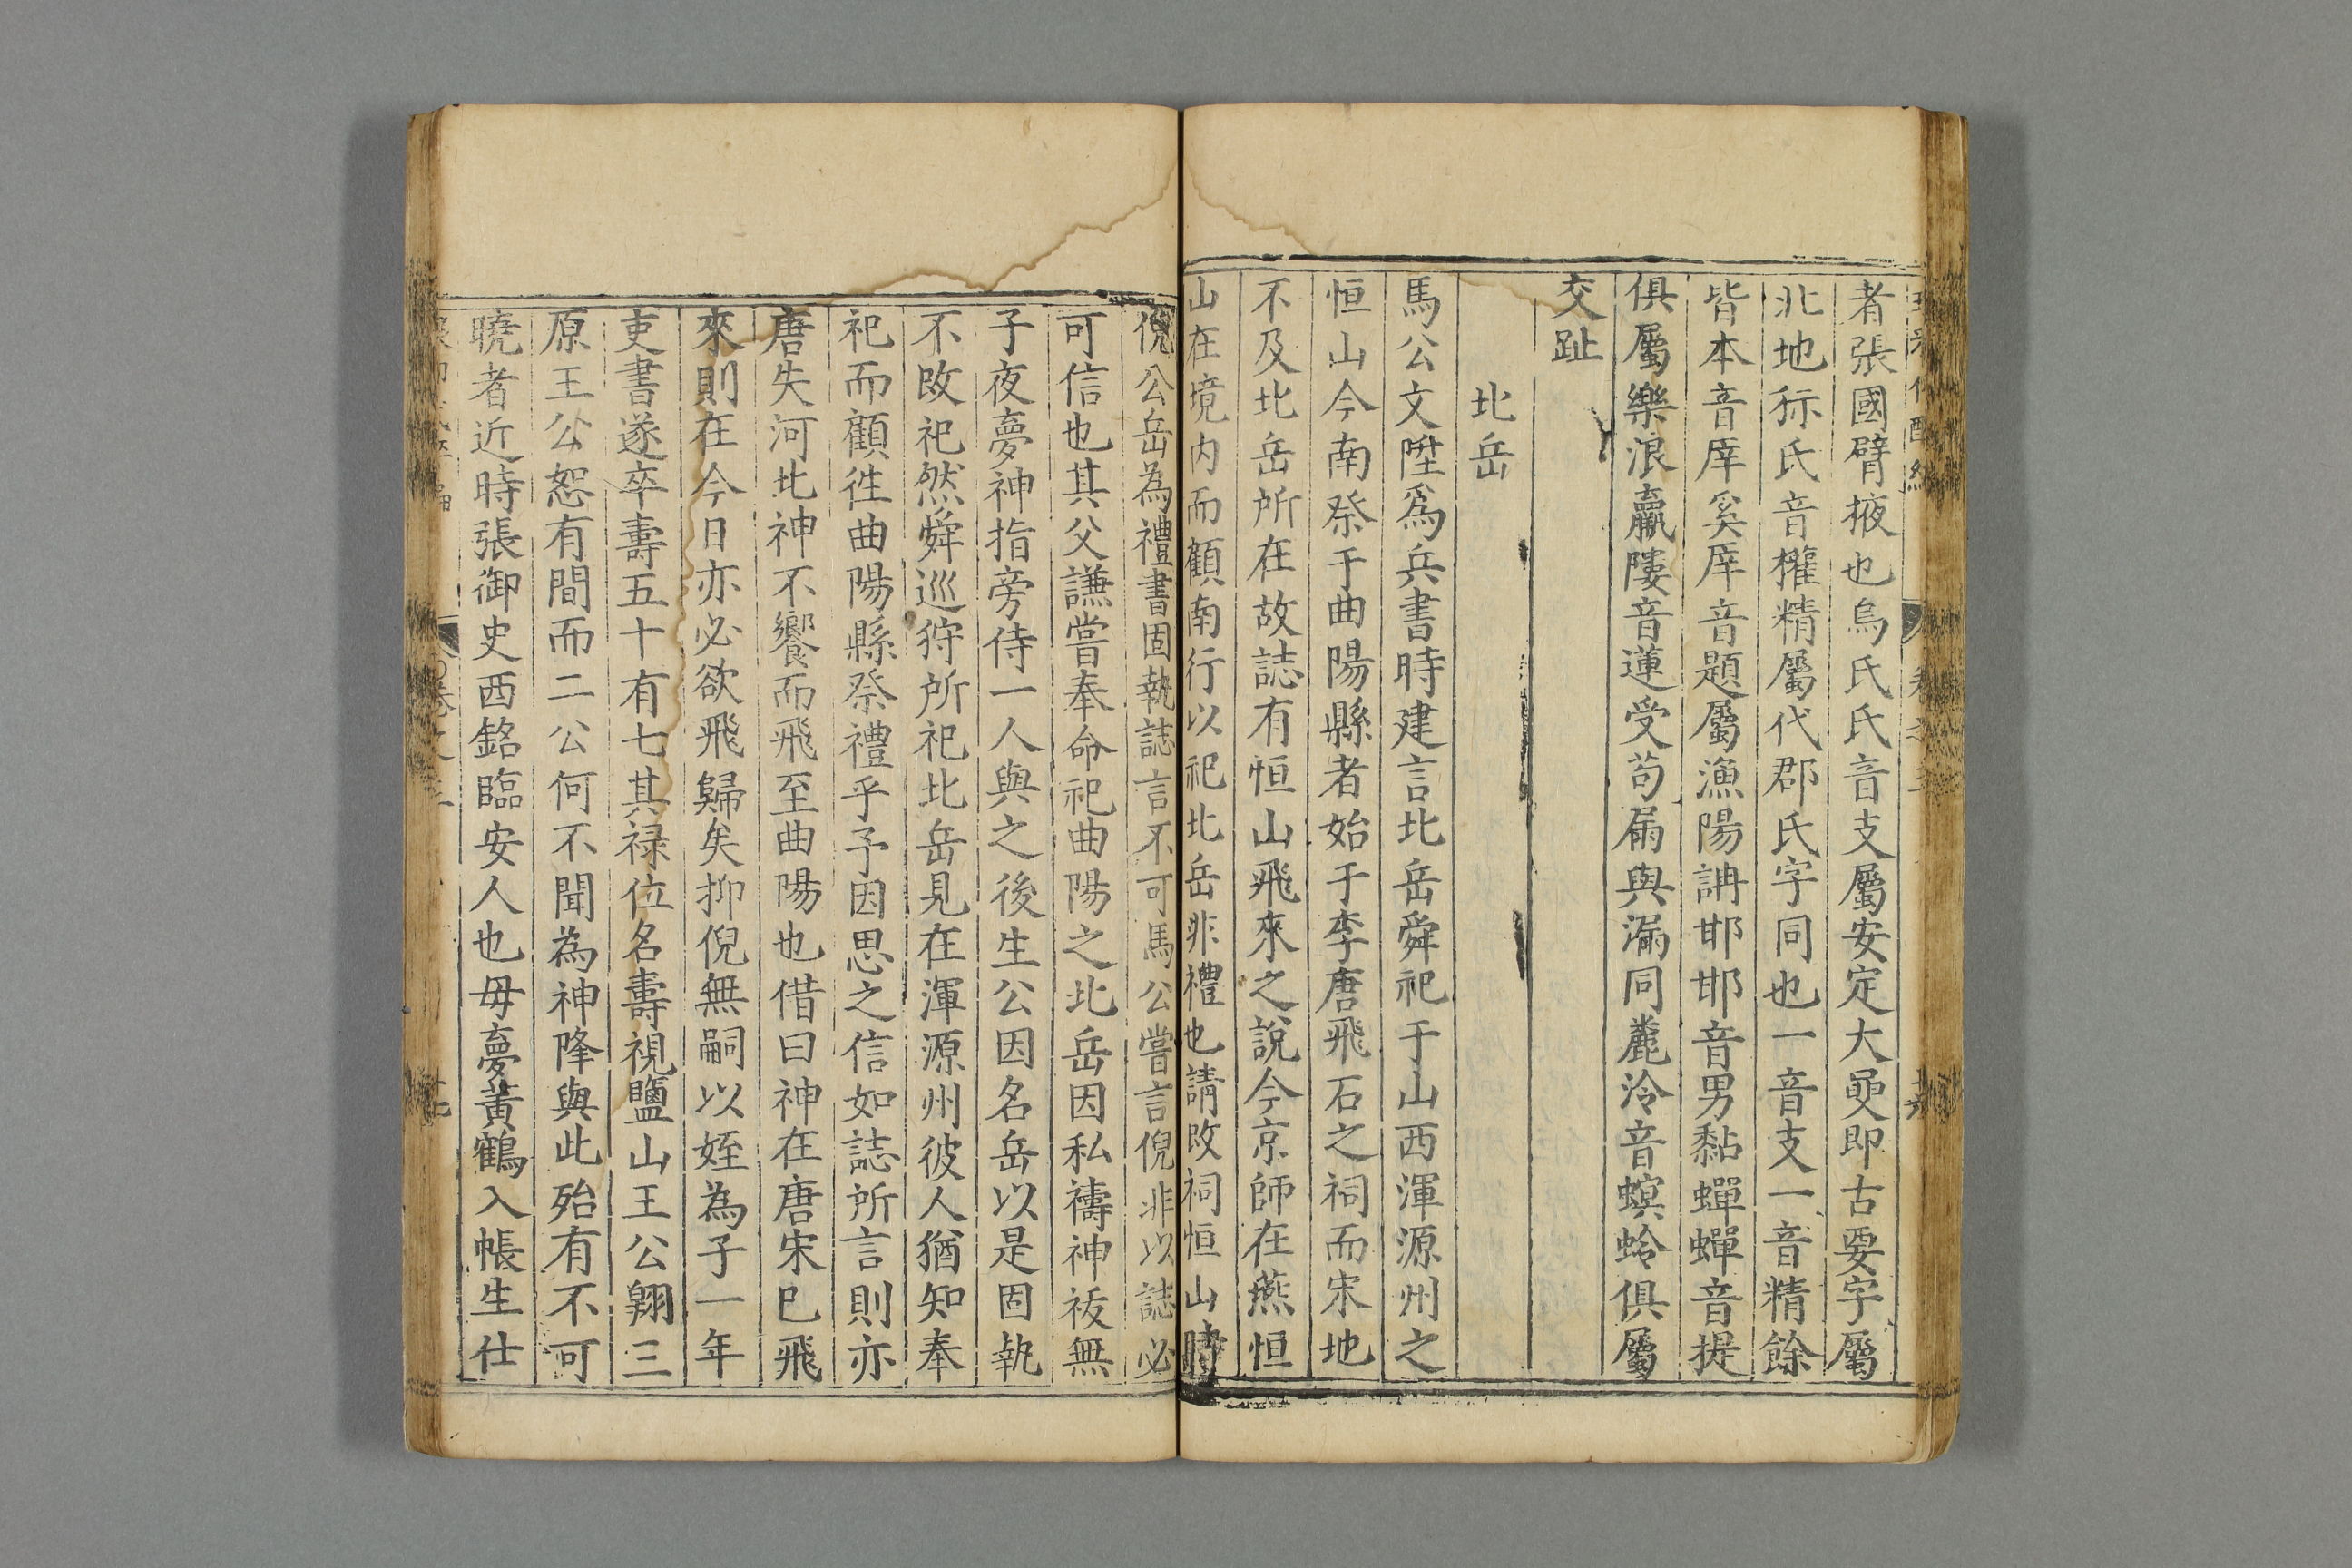 者張國臂掖也烏氏氏音支屬安定大㪅即古要字屬
北地狋氏音權精屬代郡氏字同也一音支一音精餘
皆本音厗奚厗音題屬漁陽䛁邯邯音男黏蟬蟬音提
俱屬樂浪羸𨻻音蓮受苟屚與漏同麊泠音螟蛉俱屬
交趾
北岳
馬公文陞爲兵書時建言北岳舜祀于山西渾源州之
恒山今南祭于曲陽縣者始于李唐飛石之祠而宋地
不及北岳所在故誌有恒山飛來之說今京師在燕恒
山在境内而顧南行以祀北岳非禮也請改祠恒山時
倪公岳為禮書固執誌言不可馬公嘗言倪非以誌必
可信也其父謙嘗奉命祀曲陽之北岳因私禱神祓無
子夜夢神指旁侍一人與之後生公因名岳以是固執
不改祀然舜巡狩所祀北岳見在渾源州彼人猶知奉
祀而顧徃曲陽縣祭禮乎予因思之信如誌所言則亦
唐失河北神不饗而飛至曲陽也借曰神在唐宋已飛
來則在今日亦必欲飛歸矣抑倪無嗣以姪為子一年
吏書遂卒壽五十有七其禄位名壽視鹽山王公翱三
原王公恕有間而二公何不聞為神降與此殆有不可
曉者近時張御史西銘臨安人也毋夢黃鶴入帳生仕